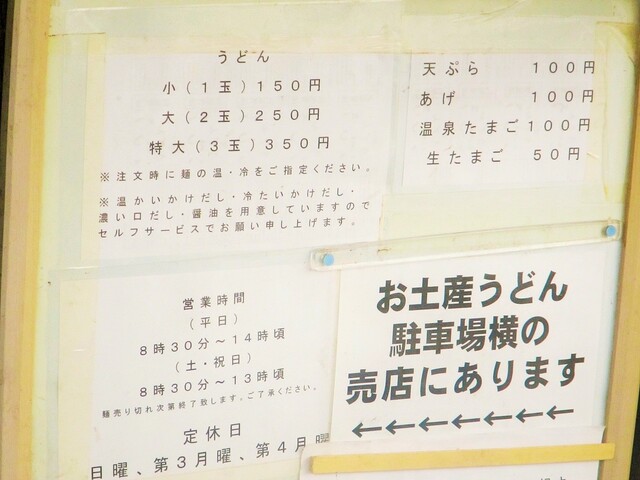 うどん
小（１玉）１５０円
大（２玉）２５０円
特大（３玉）３５０円
※注文時に麺の温・冷をご指定ください。
※温かいかけだし・冷たいかけだし・
濃い口だし・醤油を用意していますので
セルフサービスでお願い申し上げます。
天ぷら　１００円
あげ　１００円
温泉たまご１００円
生たまご　５０円
営業時間
（平日）
８時３０分～１４時頃
（土・祝日）
８時３０分～１３時頃
麺売り切れ次第終了致します。ご了承ください。
定休日
日曜、第３月曜、第４月曜
お土産うどん
駐車場横の
売店にあります
←←←←←←←